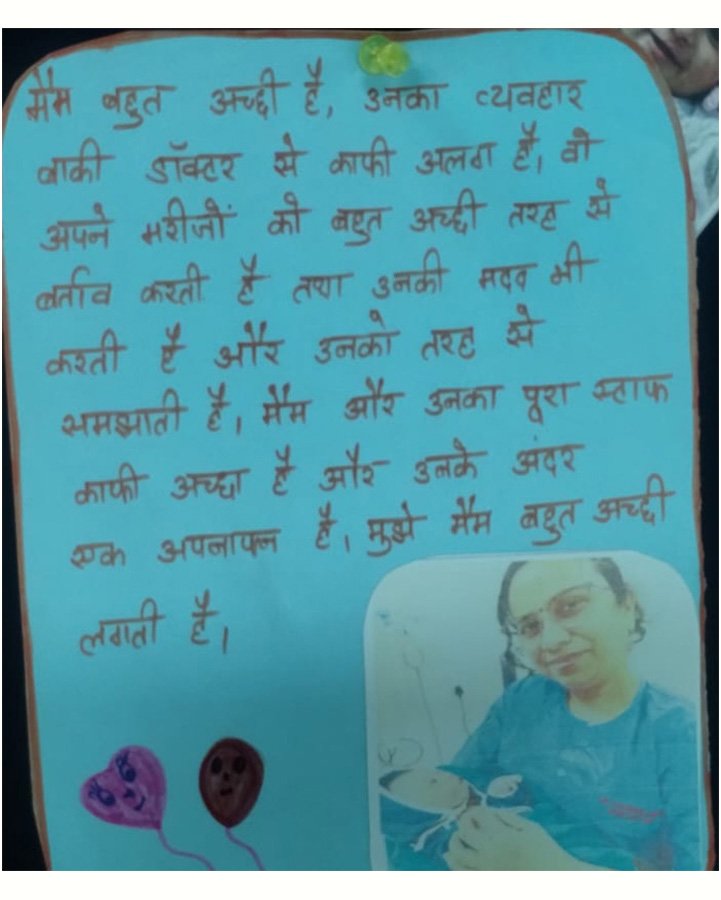 मैम बहुत अच्छी है, उनका व्यवहार
बाकी डॉक्टर से काफी अलग है, वो
अपने मरीजों को बहुत अच्छी तरह से
बर्ताव करती है तथा उनकी मदद भी
करती है और उनको तरह से
समझाती है, मैम और उनका पूरा स्टाफ
काफी अच्छा है और उनके अंदर
एक अपनापन है, मुझे मैम बहुत अच्छी
लगती है।